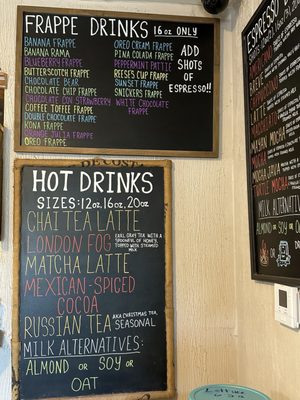 FRAPPE DRINKS 16oz ONLY
BANANA FRAPPE
BANANA RAMA
BLUEBERRY FRAPPE
BUTTERSCOTCH FRAPPE
CHOCOLATE BEAR
CHOCOLATE CHIP FRAPPE
CHOCOLATE COV STRAWBERRY
COFFEE TOFFEE FRAPPE
DOUBLE CHOCOLATE FRAPPE
KONA FRAPPE
ORANGE JULIA FRAPPE
OREO FRAPPE
OREO CREAM FRAPPE
PINA COLADA FRAPPE
PEPPERMINT PATTIE
REESES CUP FRAPPE
SUNSET FRAPPE
SNICKERS FRAPPE
WHITE CHOCOLATE
FRAPPE
ADD
SHOTS
OF
ESPRESSO!!
HOT DRINKS
SIZES: 12oz, 16oz, 20oz
CHAI TEA LATTE
LONDON FOG
EARL GRAY TEA WITH A
SPOONFUL OF HONEY,
TOPPED WITH STEAMED
MILK
MATCHA LATTE
MEXICAN-SPICED
COCOA
RUSSIAN TEA
AKA CHRISTMAS TEA,
SEASONAL
MILK ALTERNATIVES:
ALMOND OR SOY OR
OAT
ESPRESSO
MOCHA
MAYAN MOCHA
MOCHA JAVA
TURTLE MOCHA
MILK ALTERNATI
ALMOND OR SOY
OR